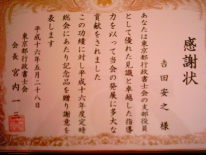 感謝状
吉田安之 様
あなたは東京都行政書士会の支部役員
として優れた見識と卓越した指導
力を以って当会の発展に多大な
貢献をされました
この功績に対し平成十六年度定時
総会にあたり記念品を贈り謝意を
表します
平成十六年五月二十八日
東京都行政書士会
会長 宮内一三